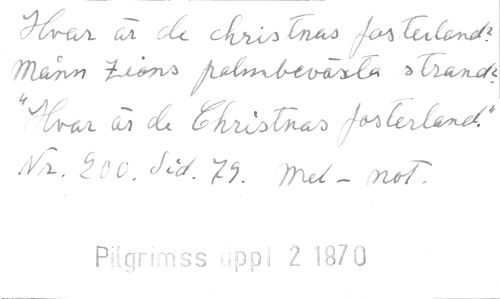 Hvar är de christnas fosterland?
Månn Zions palmbeväxta strand?
"Hvar är de Christnas fosterland."
Nr. 200. Sid. 79. Mel - not.
Pilgrimss uppl 2 1870